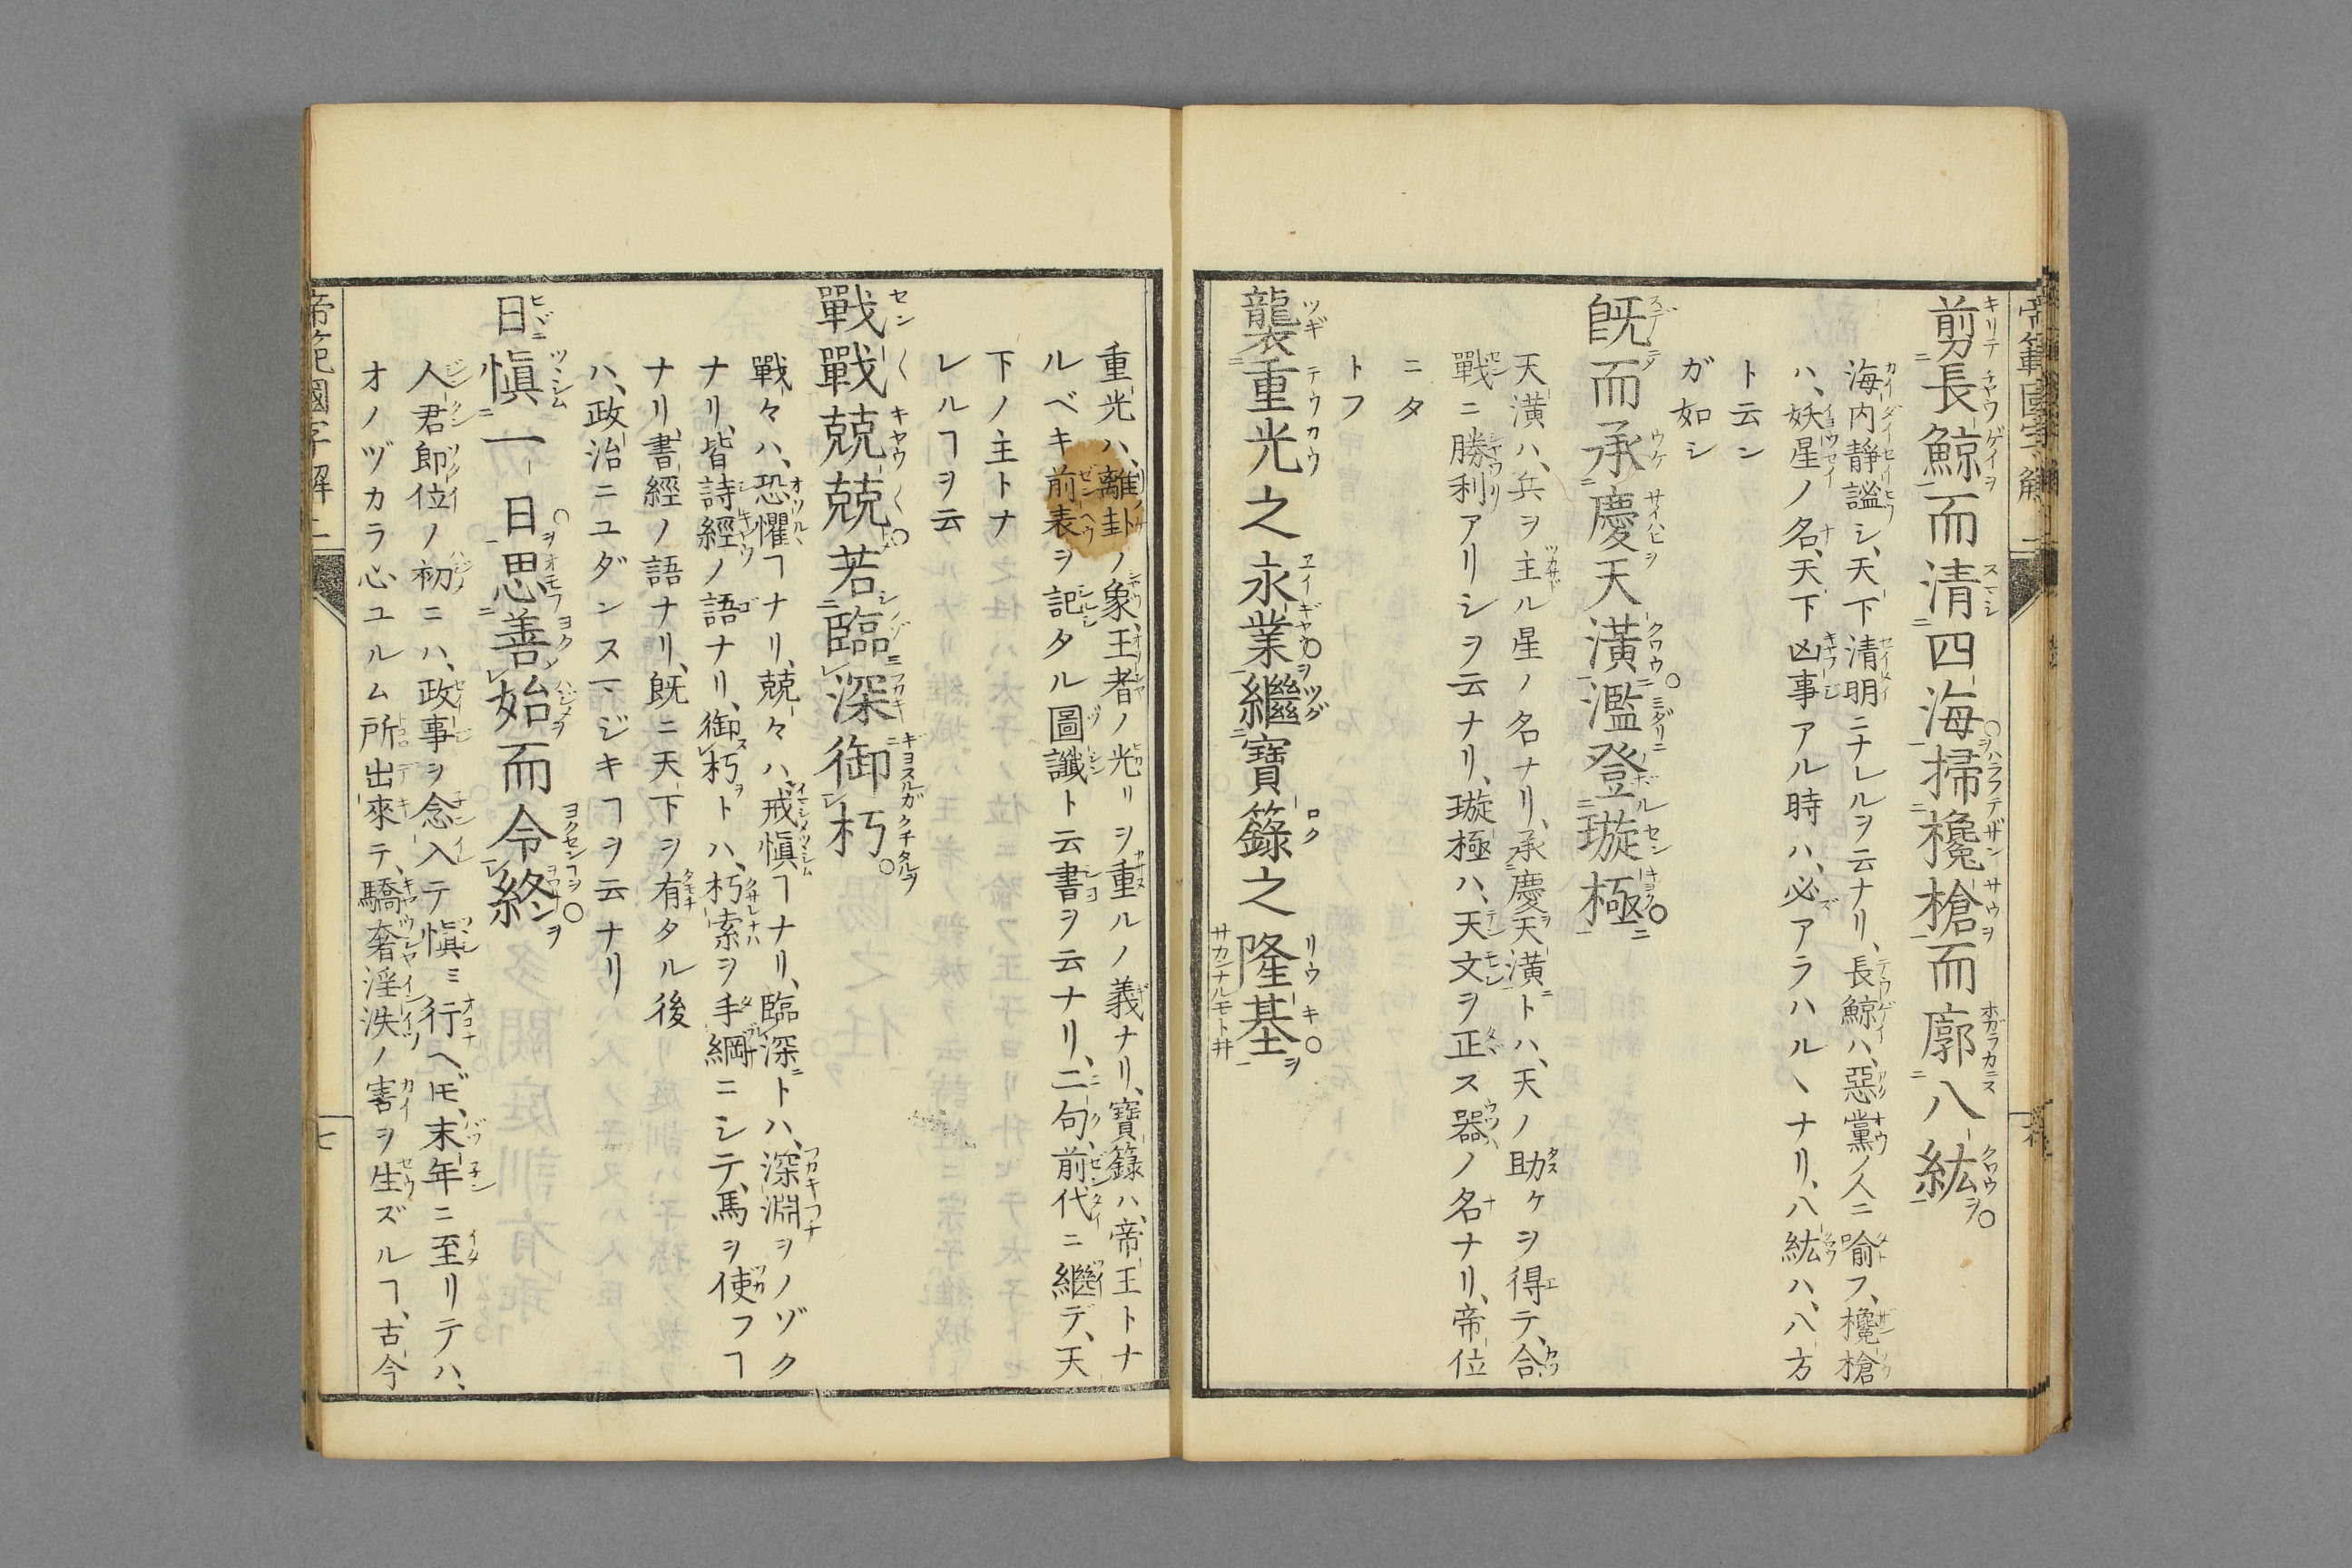 剪長鯨而清四海掃欃槍而廓八紘
海内靜謐シ、天下清明ニナレルヲ云ナリ、長鯨ハ、惡黨ノ人ニ喻フ、欃槍
ハ、妖星ノ名、天下凶事アル時ハ、必アラハルヽナリ、八紘ハ、八方
ト云ン
ガ如シ
既而承慶天潢濫登璇極
天潢ハ、兵ヲ主ル星ノ名ナリ、承慶天潢トハ、天ノ助ケヲ得テ、合
戰ニ勝利アリシヲ云ナリ、璇極ハ、天文ヲ正ス器ノ名ナリ、帝位
ニタ
トフ
襲重光之永業繼寶籙之隆基
重光ハ、離卦ノ象、王者ノ光リヲ重ルノ義ナリ、寶籙ハ、帝王トナ
ルベキ前表ヲ記タル圖讖ト云書ヲ云ナリ、二句、前代ニ繼デ、天
下ノ主トナ
レルヿヲ云
戰戰兢兢若臨深御朽
戰々ハ、恐懼ヿナリ、兢々ハ、戒愼ヿナリ、臨深トハ、深淵ヲノゾク
ナリ、皆詩經ノ語ナリ、御朽トハ、朽索ヲ手綱ニシテ、馬ヲ使フヿ
ナリ、書經ノ語ナリ、既ニ天下ヲ有タル後
ハ、政治ニユダンスマジキヿヲ云ナリ
日愼一日思善始而令終
人君即位ノ初ニハ、政事ヲ念入テ愼ミ行ヘ𪜈、末年ニ至リテハ、
オノヅカラ心ユルム所出來テ、驕奢淫泆ノ害ヲ生ズルヿ、古今
帝範國字解二
七